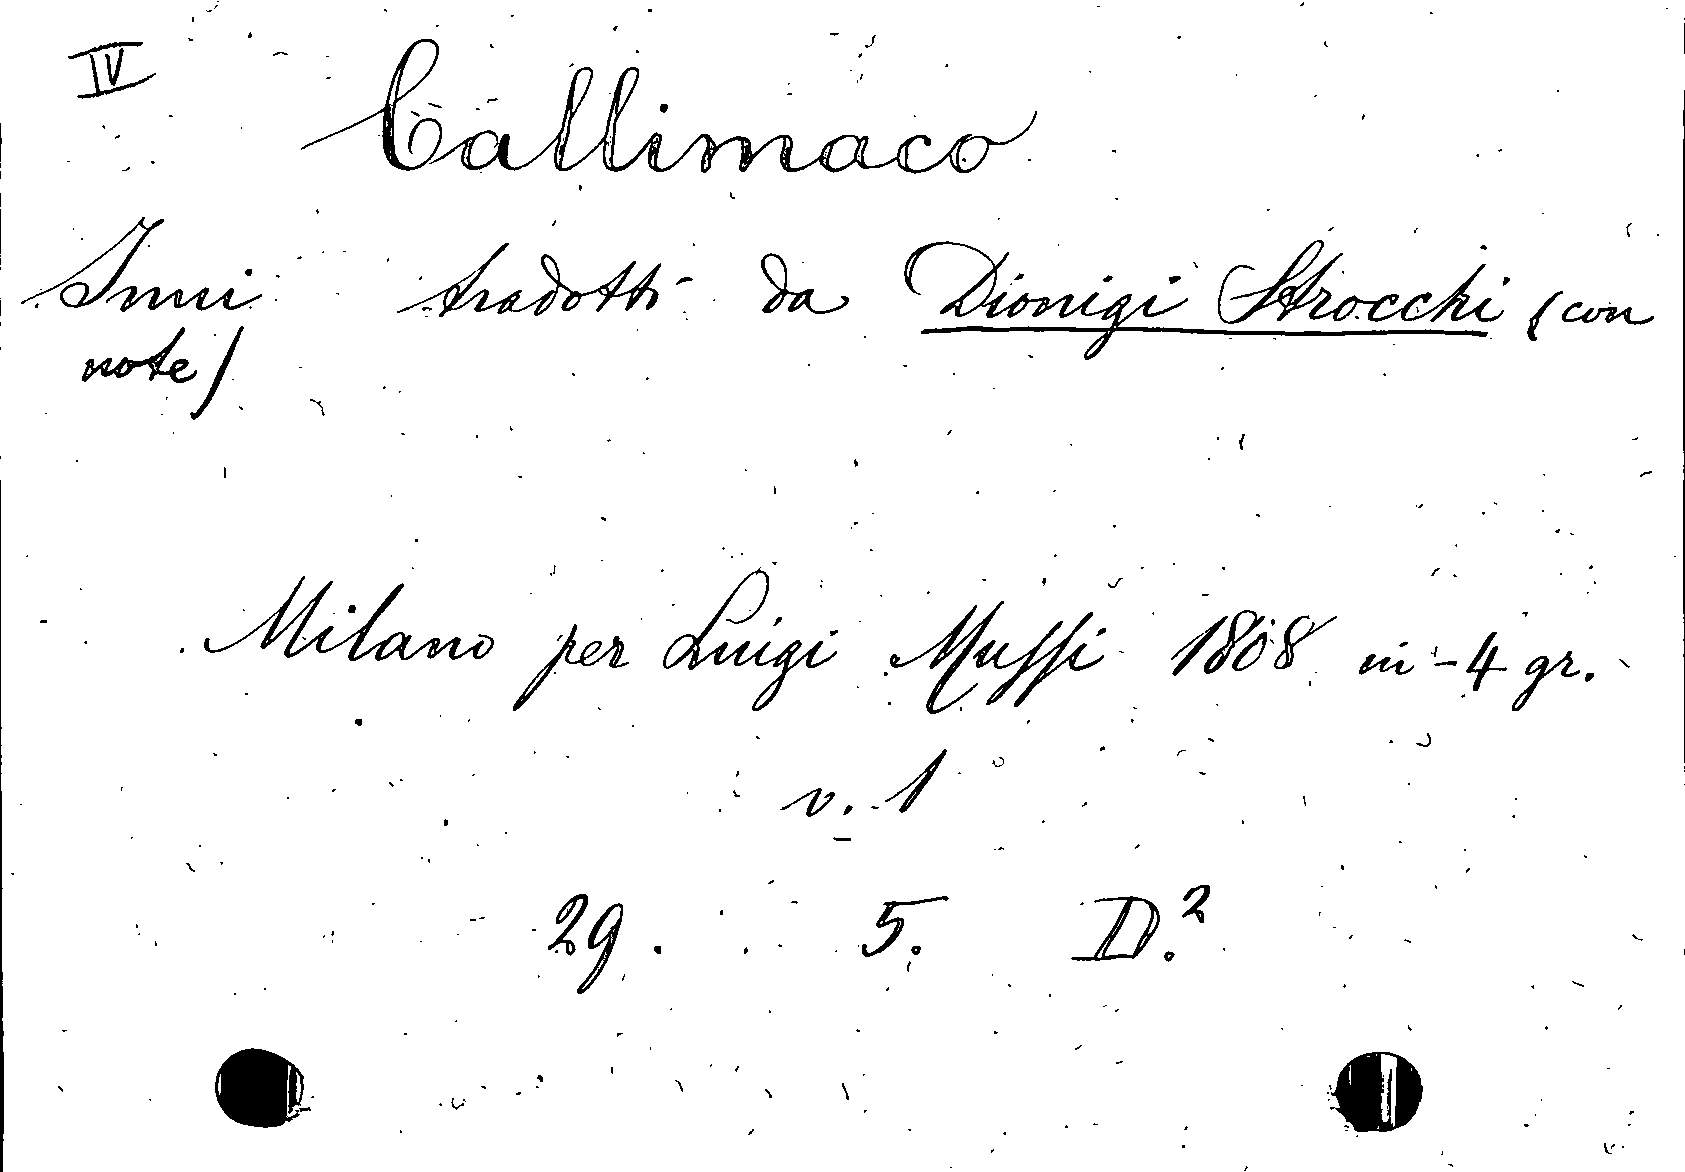 IV
Callimaco
Inni tradotti da Dionigi Strocchi (con
note)
Milano per Luigi Mussi 1808 in-4 gr.
v. 1
29. 5. D.²